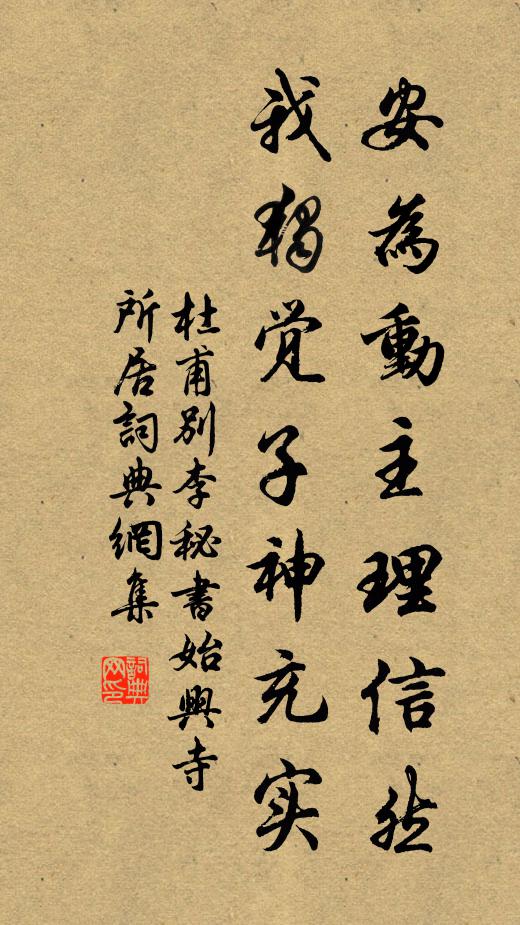 安為動主理信然
我独觉子神充实
杜甫別李秘書始興寺
所居詞典網集
詞典網印